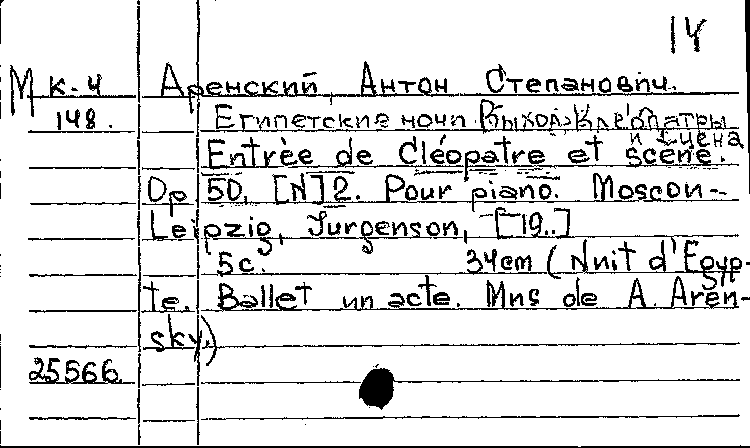 14
М К-4 Аренский, Антон Степанович.
148. Египетские ночи. Выход Клеопатры
и сцена
Entrèe de Cléopatre et scéne.
Op 50, [N] 2. Pour piano. Moscou-
Leipzig, Jurgenson, [19..]
5c. 34cm (Nuit d'Egyp-
te. Ballet un acte. Mns de A. Aren-
sky.)
25566.